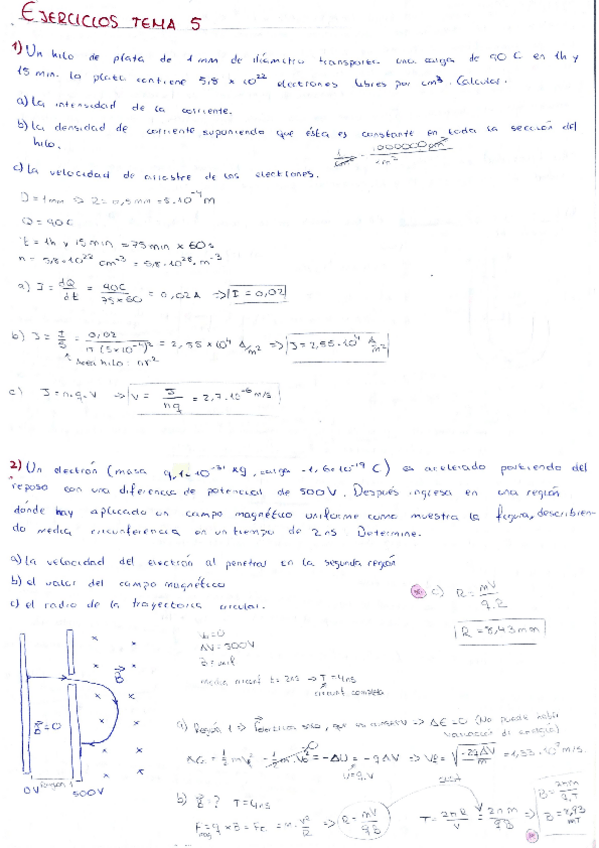 EJERCICIOS TEMA 5
1) Un hilo de plata de 1 mm de diámetro transporta una carga de 90 C en 1h y
15 min. La plata contiene 5,8 x 10²² electrones libres por cm³. Calcular.
a) La intensidad de la corriente.
b) La densidad de corriente suponiendo que ésta es constante en toda la sección del
hilo.
c) La velocidad de arrastre de los electrones.
D = 1mm => R = 0,5mm = 5·10⁻⁴ m
Q = 90C
t = 1h y 15 min = 75 min x 60s
n = 5,8·10²² cm⁻³ = 5,8·10²⁸ m⁻³
a) I = dQ/dt = 90C/75x60 = 0,02A => I = 0,02
b) J = I/S = 0,02/π(5x10⁻⁴)² = 2,55x10⁴ A/m² => J = 2,55·10⁴ A/m²
Área hilo: πr²
c) J = n·q·v => v = J/nq = 2,7·10⁻⁶ m/s
2) Un electrón (masa 9,1·10⁻³¹ kg, carga -1,6·10⁻¹⁹ C) es acelerado partiendo del
reposo con una diferencia de potencial de 500V. Después ingresa en una región
dónde hay aplicado un campo magnético uniforme como muestra la figura, describien-
do media circunferencia en un tiempo de 2ns. Determine.
a) la velocidad del electrón al penetrar en la segunda región
b) el valor del campo magnético
c) el radio de la trayectoria circular.
c) R = mV/q·B
R = 8,43mm
V₀ = 0
ΔV = 500V
media t = 2ns -> T = 4ns
B = 0
B
0V
500V
a) Región 1 =>
b) B = ? T = 4ns
R = mV/qB
T = 2πR/v = 2πm/qB =>
B = 2πm/q·T
B = 8,93 mT